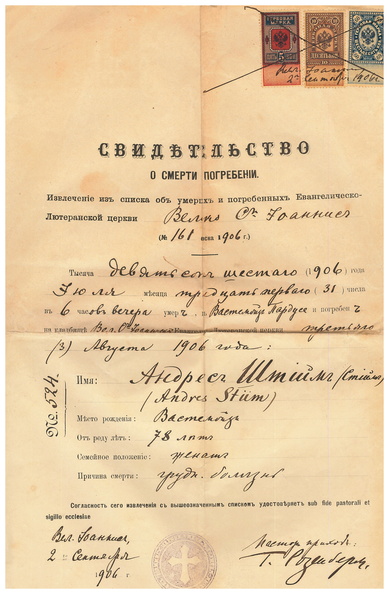 5
Вел. Іоаннис
2 Сентября 1906 г.
СВИДѢТЕЛЬСТВО
О СМЕРТИ ПОГРЕБЕНІИ.
Извлеченіе изъ списка объ умерихъ и погребенныхъ Евангелическо-
Лютеранской церкви Велко Ст. Іоаннис
(№ 161 1906 г.)
Тысяча девятсот шестаго (1906) года
Іюля мѣсяца тридцать перваго (31) числа
въ 6 часовъ вечера умер ч. и погребен
на кладбищѣ Вел. Ст. Іоаннис третьяго
(3) Августа 1906 года:
No. 524.
Имя: Андрес Штіймъ (Стіймъ)
(Andres Stiim)
Мѣсто рожденія:
Отъ роду лѣтъ: 78 лѣтъ
Семейное положеніе: женатъ
Причина смерти: грудн. болѣзнь
Согласность сего извлеченія съ вышеозначеннымъ спискомъ удостовѣряетъ sub fide pastorali et
sigillo ecclesiae
Вел. Іоаннис,
2 Сентября
1906 г.
Пасторъ прихода:
Г. Розенбергъ.